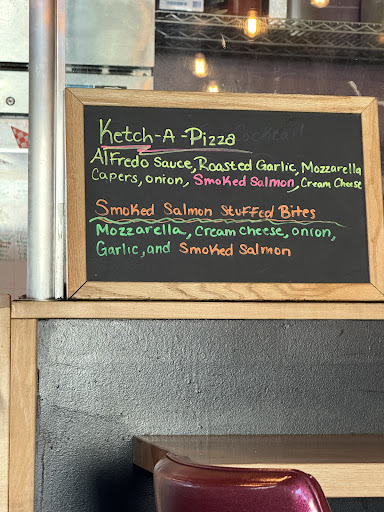 Ketch-A-Pizza Cocktail
Alfredo Sauce, Roasted Garlic, Mozzarella
Capers, onion, Smoked Salmon, Cream Cheese
Smoked Salmon Stuffed Bites
Mozzarella, Cream cheese, onion,
Garlic, and Smoked Salmon